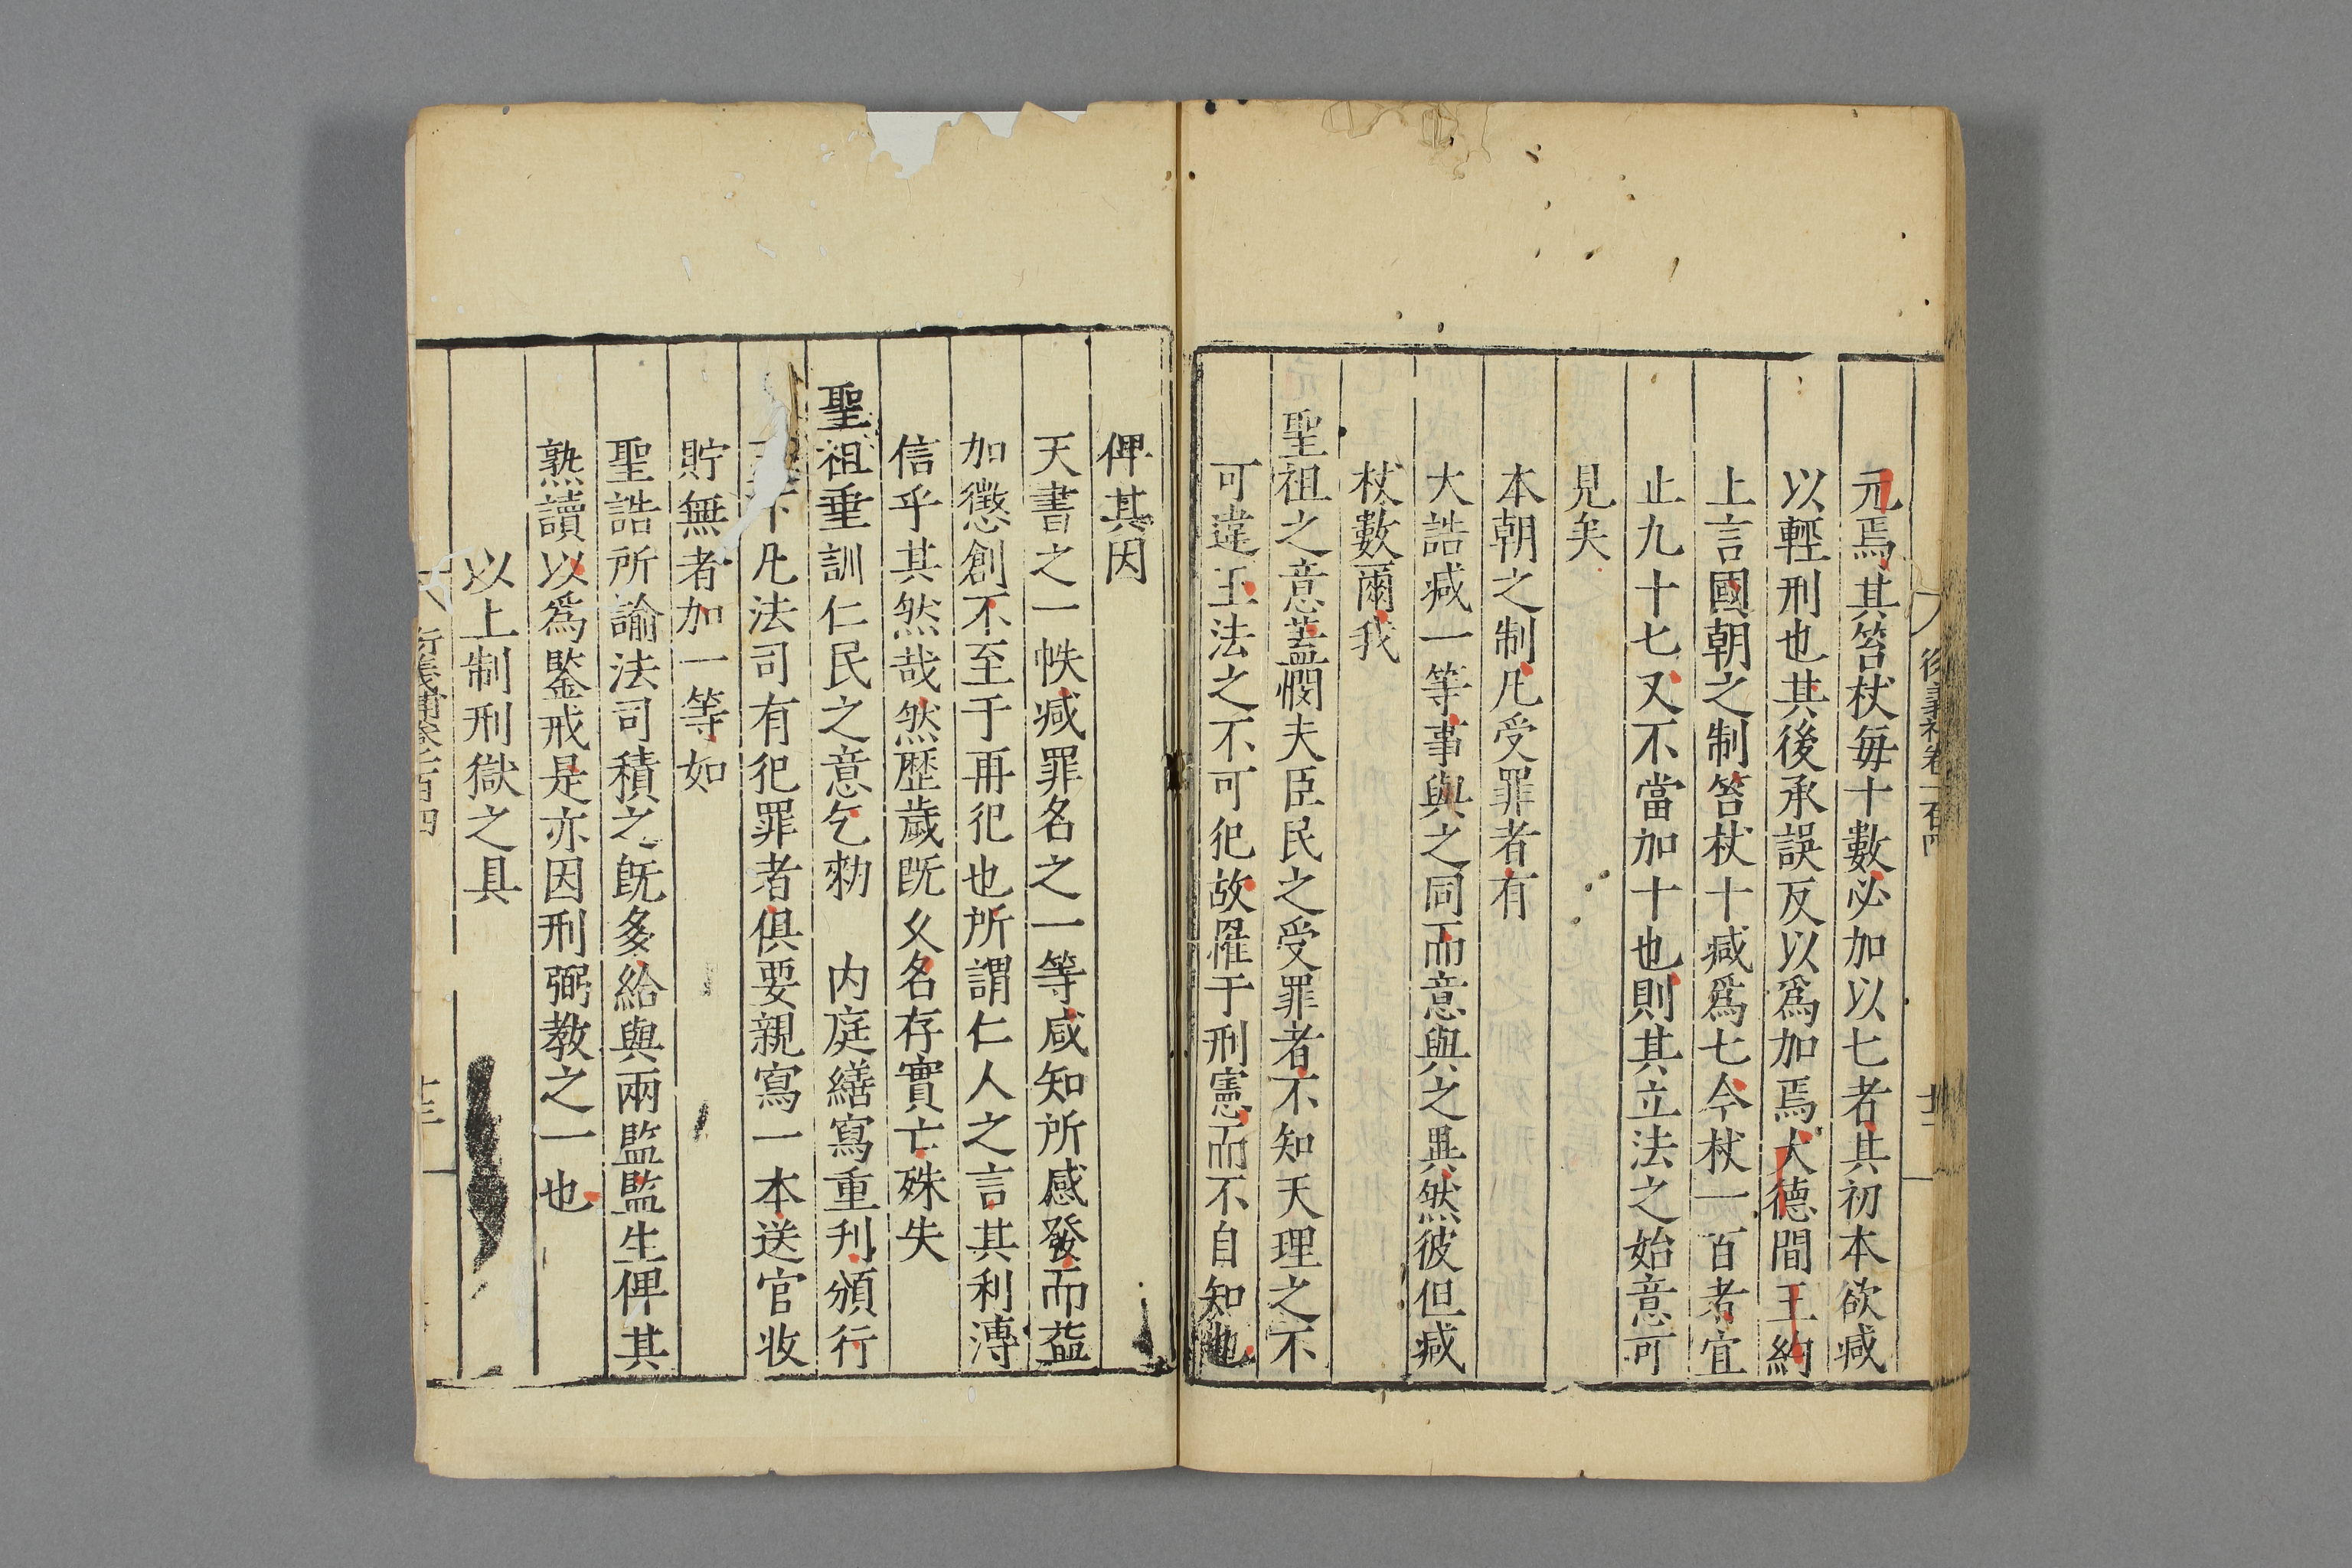 元焉其笞杖每十數必加以七者其初本欲减
以輕刑也其後承誤反以爲加焉大德間王約
上言國朝之制笞杖十减爲七今杖一百者宜
止九十七又不當加十也則其立法之始意可
見矣
本朝之制凡受罪者有
大誥减一等事與之同而意與之異然彼但减
杖數爾我
聖祖之意蓋憫夫臣民之受罪者不知天理之不
可違王法之不可犯故罹于刑憲而不自知也
俾其因
天書之一帙减罪名之一等咸知所感發而益
加懲創不至于再犯也所謂仁人之言其利溥
信乎其然哉然歴歳既久名存實亡殊失
聖祖垂訓仁民之意乞勑　内庭繕寫重刋頒行
下凡法司有犯罪者俱要親寫一本送官收
貯無者加一等如
聖誥所諭法司積之既多給與兩監監生俾其
熟讀以爲鑒戒是亦因刑弼教之一也
以上制刑獄之具